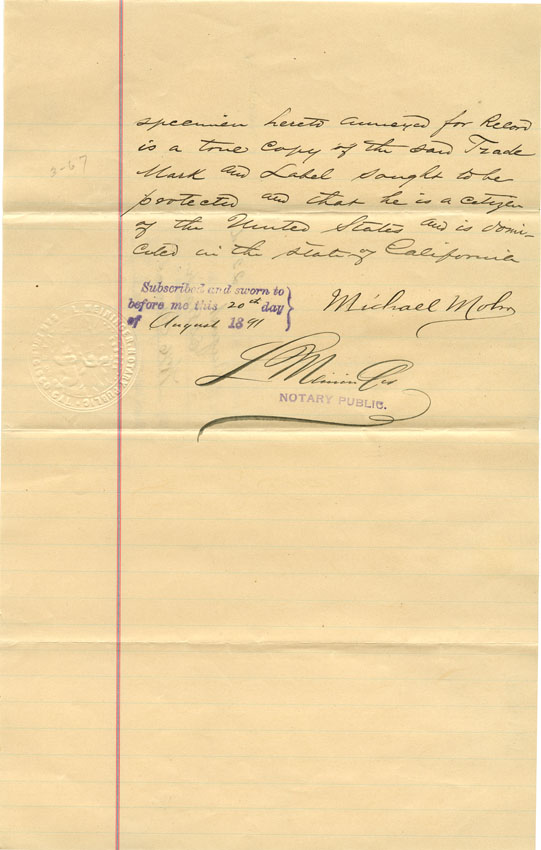 specimen hereto annexed for Record
is a true copy of the said Trade
Mark and Label sought to be
protected and that he is a citizen
of the United States and is domi-
ciled in the state of California
2-67
Subscribed and sworn to
before me this 20th day
of August 1891
Michael Mohn
L
NOTARY PUBLIC.
NOTARY PUBLIC